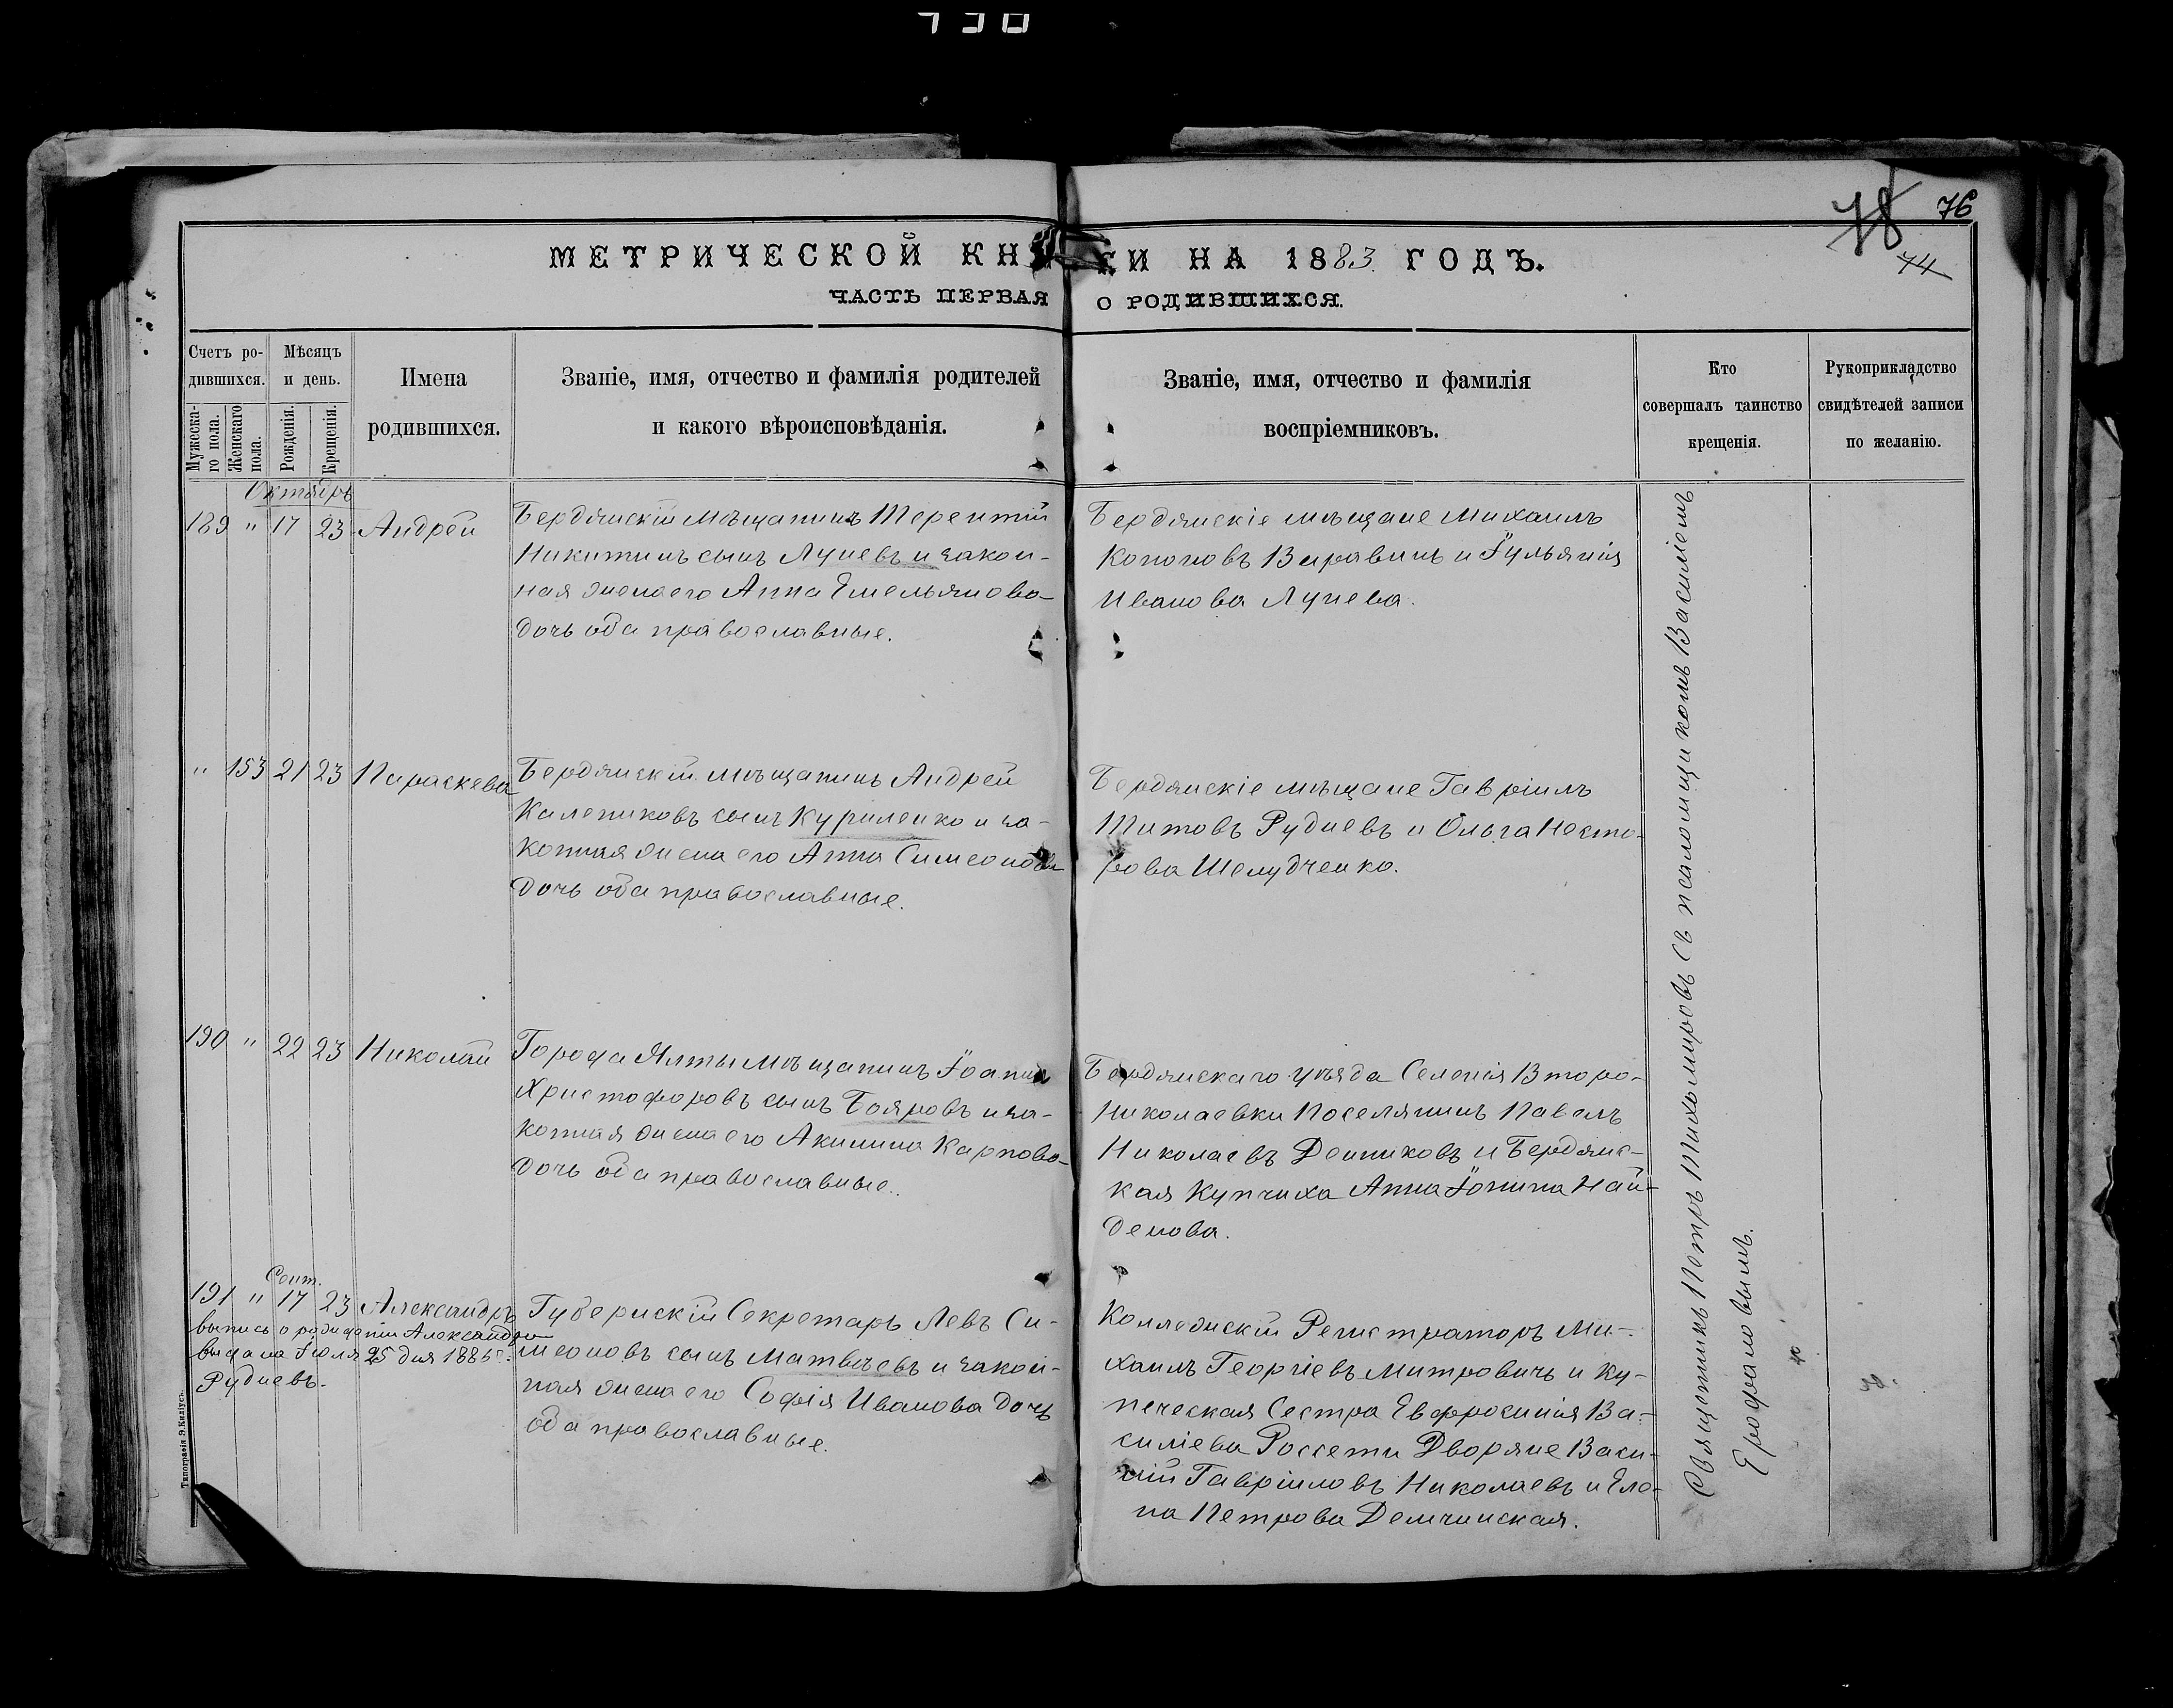 78 76
74
МЕТРИЧЕСКОЙ КНИГИ НА 1883 ГОДЪ.
ЧАСТЬ ПЕРВАЯ О РОДИВШИХСЯ.
Счетъ ро-
дившихся.
Мужеска-
го пола.
Женскаго
пола.
Мѣсяцъ
и день.
Рожденія.
Крещенія.
Имена
родившихся.
Званіе, имя, отчество и фамилія родителей
и какого вѣроисповѣданія.
Званіе, имя, отчество и фамилія
воспріемниковъ.
Кто
совершалъ таинство
крещенія.
Рукоприкладство
свидѣтелей записи
по желанію.
Октябрь
189 " 17 23 Андрей
Бердянскій мѣщанинъ Терентій
Никитинъ сынъ Луневъ и закон-
ная жена его Анна Емельянова
дочь оба православные.
Бердянскіе мѣщане Михаилъ
Кононовъ Виравинъ и Іульянія
Иванова Лунева.
" 153 21 23 Параскева
Бердянскій мѣщанинъ Андрей
Калениковъ сынъ Куриленко и за-
конная жена его Анна Симеонова
дочь оба православные.
Бердянскіе мѣщане Гавріилъ
Титовъ Рудневъ и Ольга Несто-
рова Шелудченко.
190 " 22 23 Николай
Города Ялты мѣщанинъ Іоаннъ
Христофоровъ сынъ Бояровъ и за-
конная жена его Акилина Карпова
дочь оба православные.
Бердянскаго уѣзда Селенія Второ-
николаевки Поселянинъ Павелъ
Николаевъ Денниковъ и Бердянс-
кая Купчиха Анна Іонина Най-
денова.
Сент.
191 " 17 23 Александръ
выпись о рожденіи Александра
выдана Іюля 25 дня 1885 г.
Рудневъ.
Губернскій Секретарь Левъ Си-
меоновъ сынъ Матвѣевъ и закон-
ная жена его Софія Иванова дочь
оба православные.
Коллежскій Регистраторъ Ми-
хаилъ Георгіевъ Митровичъ и Ку-
печеская Сестра Евфросинія Ва-
силіева Россети Дворяне Васи-
лій Гавріиловъ Николаевъ и Еле-
на Петрова Демчинская.
Священникъ Петръ Тихомировъ съ псаломщикомъ Василіемъ
Ерофаловымъ.
Типографія Э. Килiусъ.